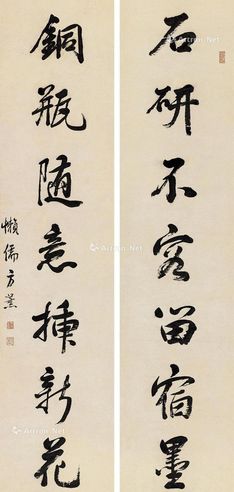 石研不容留宿墨
銅瓶随意插新花
懶儒方薰
Artron.Net